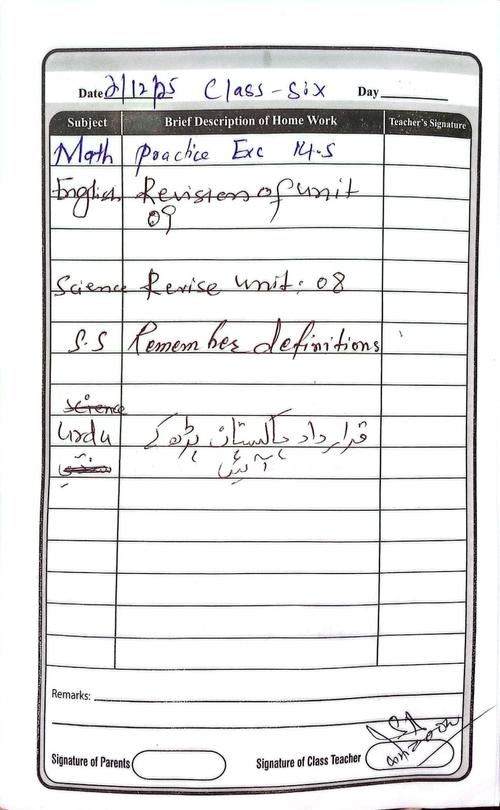 Date 2/12/25 Class-Six Day
Subject Brief Description of Home Work Teacher's Signature
Math Practice Exc 14.5
English Revision of unit
09
Science Revise unit: 08
S.S Remember definitions
Science
Urdu قرارداد پاکستان پڑھ کے
آئیں
Remarks:
Signature of Parents Signature of Class Teacher